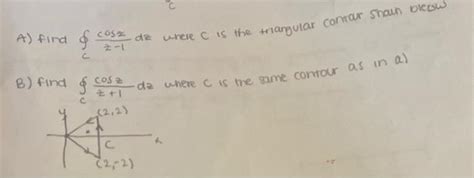 C
A) find ∮ cosz / z-1 dz where C is the triangular contour shown below
C
B) find ∮ cosz / z+1 dz where C is the same contour as in a)
C
y
(2,2)
C
x
(2,-2)